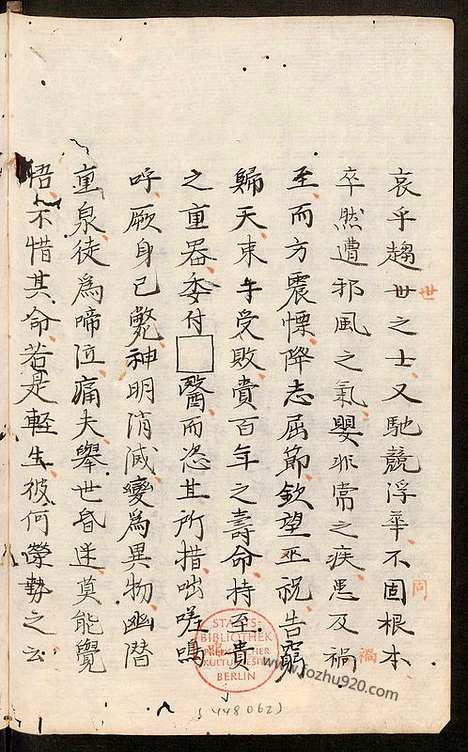 哀乎趨世之士又馳競浮華不固根本
卒然遭邪風之氣嬰非常之疾患及禍
至而方震慄降志屈節欽望巫祝告窮
歸天束手受敗賫百年之壽命持至貴
之重器委付□醫而恣其所措咄嗟嗚
呼厥身已斃神明消滅變為異物幽潛
重泉徒為啼泣痛夫舉世昏迷莫能覺
悟不惜其命若是輕生彼何榮勢之云
世
同
禍
STAATS-
BIBLIOTHEK
BERLIN
www.mozhu920.com